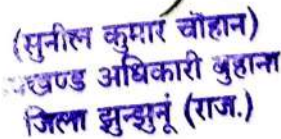 (सुनील कुमार चौहान)
खण्ड अधिकारी बुहाना
जिला झुन्झुनूं (राज.)